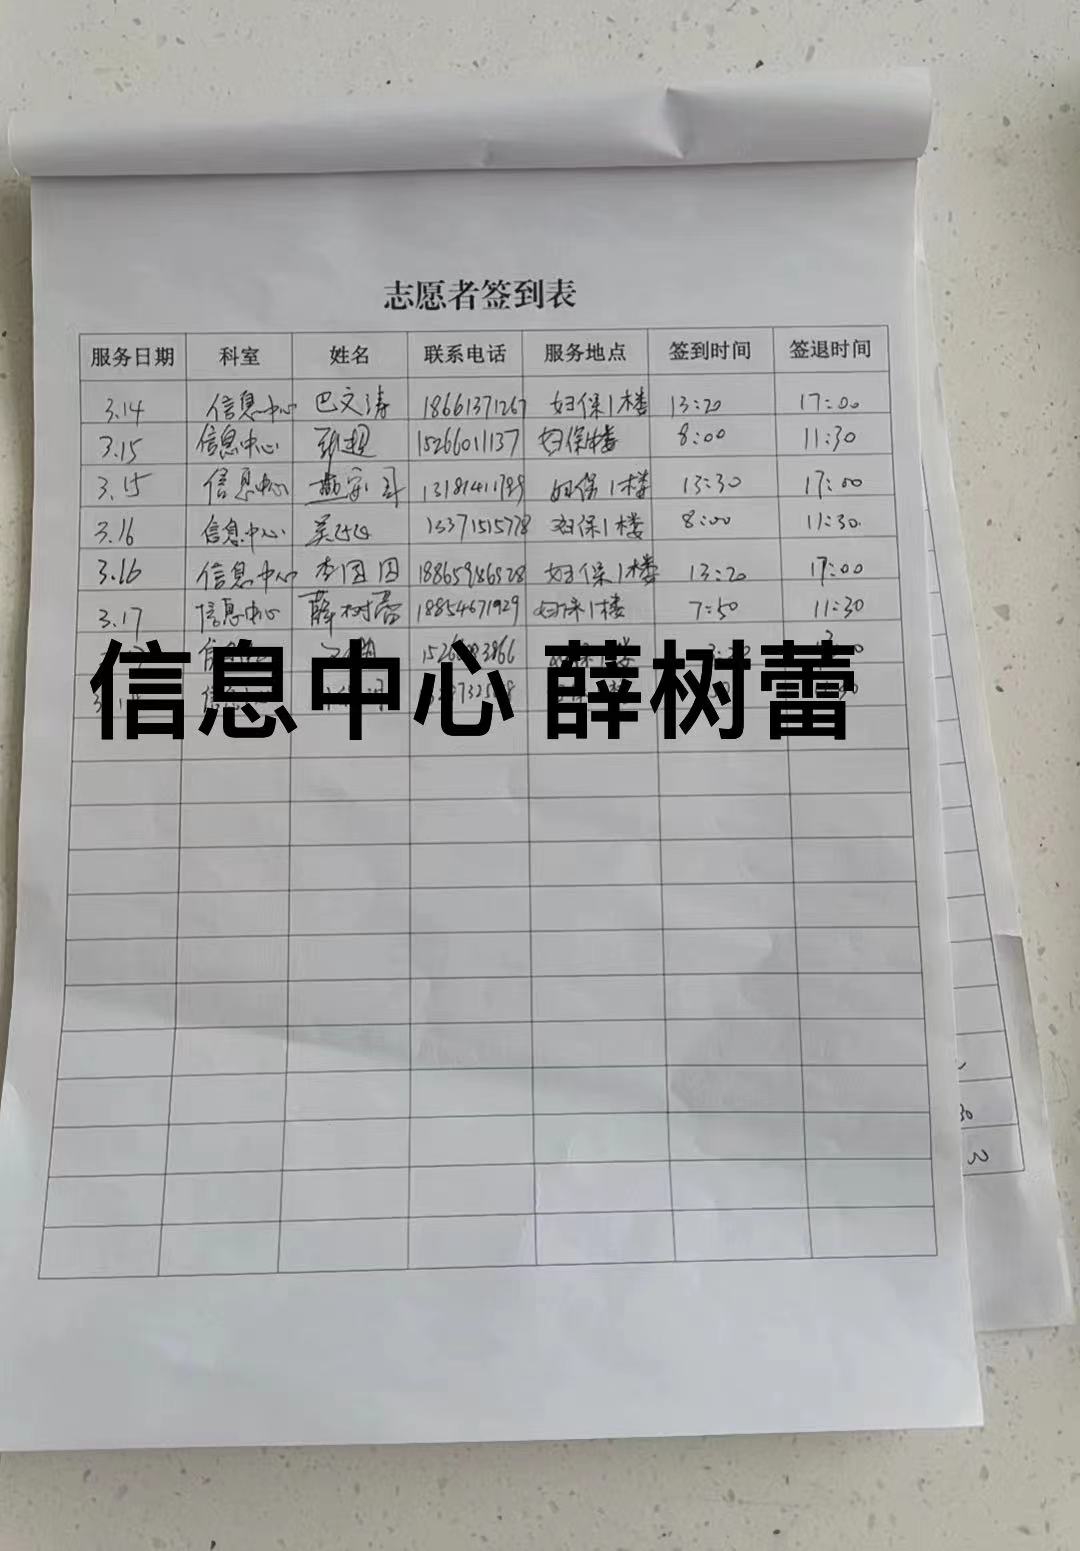 志愿者签到表
服务日期 科室 姓名 联系电话 服务地点 签到时间 签退时间
3.14 信息中心 巴文涛 18661371267 妇保1楼 13:20 17:00
3.15 信息中心 张超 15266011137 妇保1楼 8:00 11:30
3.15 信息中心 妇保1楼 13:30 17:00
3.16 信息中心 13371515778 妇保1楼 8:00 11:30
3.16 信息中心 李团团 妇保1楼 13:20 17:00
3.17 信息中心 薛树蕾 18854671929 妇保1楼 7:50 11:30
信息中心 薛树蕾